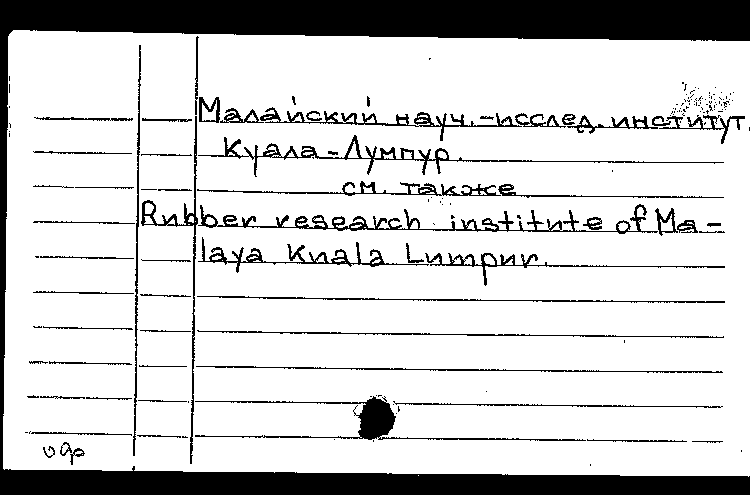 Малайский науч.-исслед. институт.
Куала-Лумпур.
см. также
Rubber research institute of Ma-
laya Kuala Lumpur.